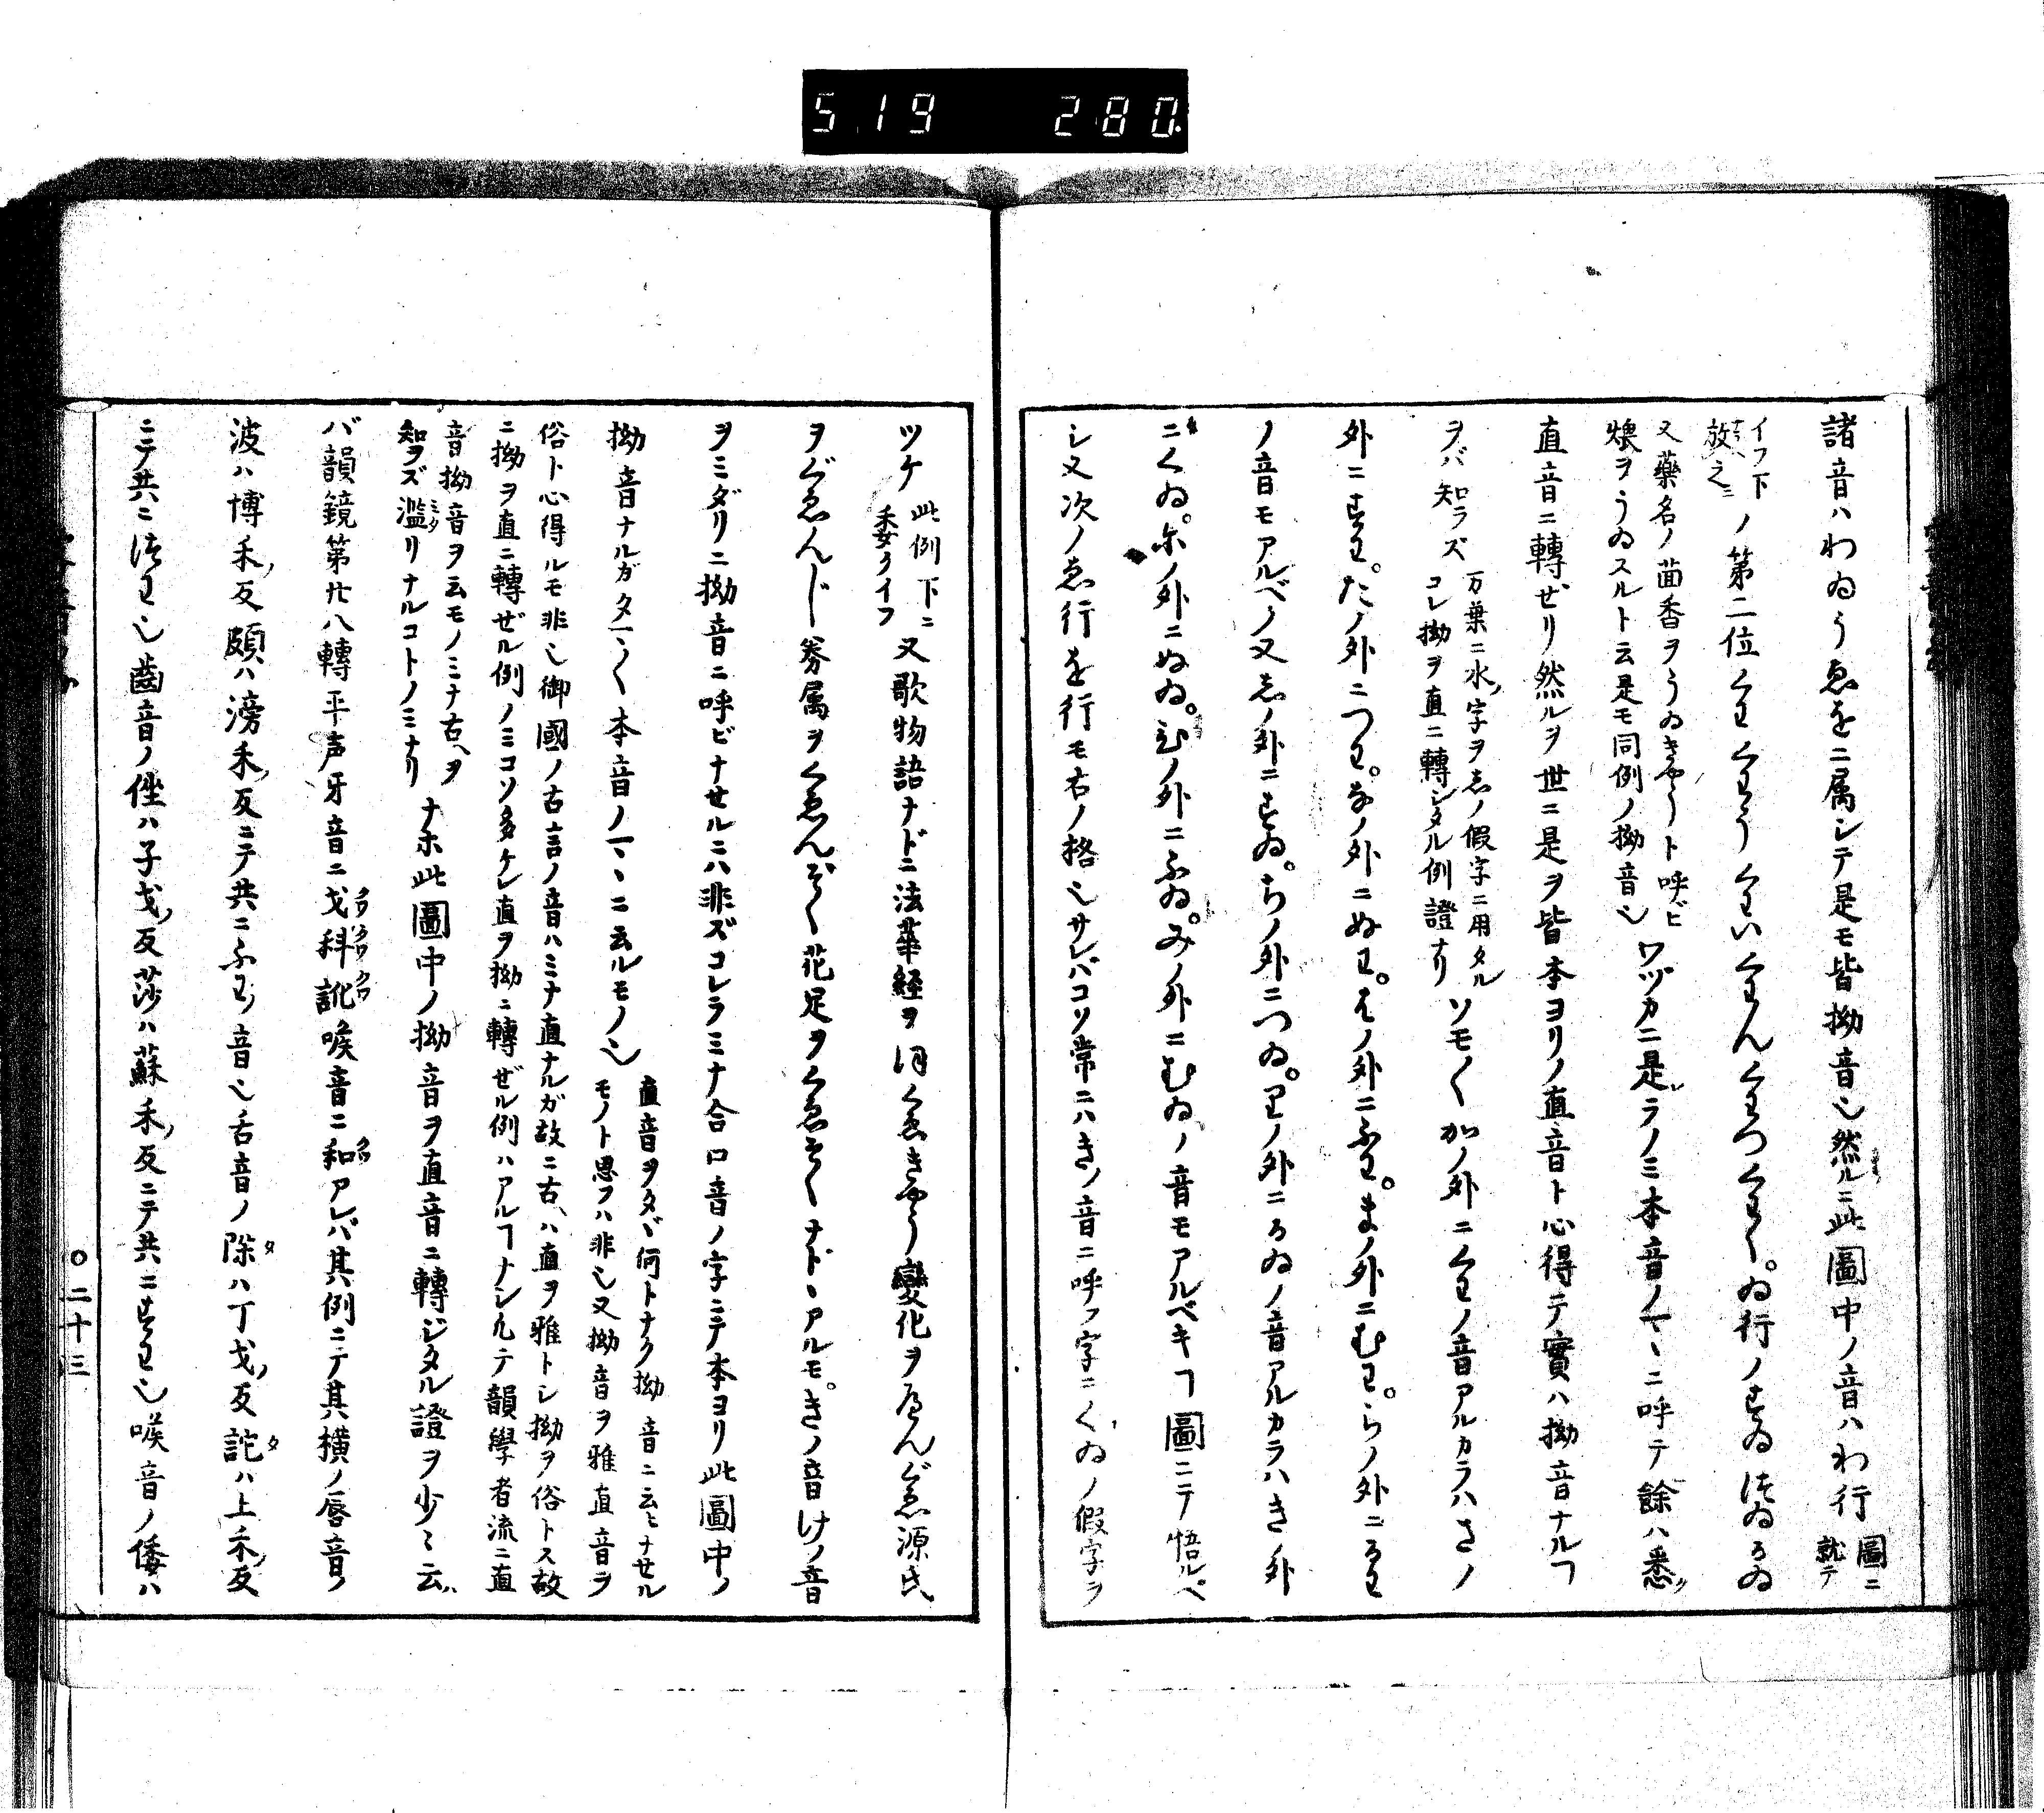 519 280
諸音ハわゐうゑをニ属シテ是モ皆拗音也然ルニ此圖中ノ音ハわ行圖ニ就テ
イフ下放之ノ第二位くわくわうくわいくわんくわつくわく。ゐ行ノすゐつゐるゐ
又藥名ノ茴香ヲうゐきやうト呼ビ煨ヲうゐスルト云是モ同例ノ拗音也ワヅカニ是ラノミ本音ノマヽニ呼テ餘ハ悉ク
直音ニ轉ゼリ然ルヲ世ニ是ヲ皆本ヨリノ直音ト心得テ實ハ拗音ナルヿ
ヲバ知ラズ万葉ニ水ノ字ヲしノ假字ニ用タルコレ拗ヲ直ニ轉ジタル例證ナリソモ〱かノ外ニくわノ音アルカラハさノ
外ニすわ。たノ外ニつわ。なノ外ニぬわ。はノ外ニふわ。まノ外ニむわ。らノ外ニるわ
ノ音モアルベク又しノ外ニすゐ。ちノ外ニつゐ。りノ外ニるゐノ音アルカラハき外
ニくゐ。にノ外ニぬゐ。ひノ外ニふゐ。みノ外ニむゐノ音モアルベキヿ圖ニテ悟ルベ
シ又次ノゑ行を行モ右ノ格也サレバコソ常ニハきノ音ニ呼フ字ニくゐノ假字ヲ
ツケ此例下ニ委クイフ又歌物語ナドニ法華経ヲほくゑきやう變化ヲへんぐゑ源氏
ヲぐゑんじ眷属ヲくゑんぞく花足ヲくゑそくナドヽアルモ。きノ音けノ音
ヲミダリニ拗音ニ呼ビナセルニハ非ズコレラミナ合口音ノ字ニテ本ヨリ此圖中ノ
拗音ナルガタマ〱本音ノマヽニ云ルモノ也直音ヲタヾ何トナク拗音ニ云ヒナセルモノト思フハ非也又拗音ヲ雅直音ヲ
俗ト心得ルモ非也御國ノ古言ノ音ハミナ直ナルガ故ニ古ヘハ直ヲ雅トシ拗ヲ俗トス故ニ拗ヲ直ニ轉ゼル例ノミコソ多ケレ直ヲ拗ニ轉ゼル例ハアルヿナシ凡テ韻學者流ニ直
音拗音ヲ云モノミナ古ヘヲ知ラズ濫リナルコトノミナリナホ此圖中ノ拗音ヲ直音ニ轉ジタル證ヲ少〻云ハ
バ韻鏡第廿八轉平声牙音ニ戈クワ科クワ訛クワ喉音ニ和クワアレバ其例ニテ其横ノ唇音ノ
波ハ博禾ノ反頗ハ滂禾ノ反ニテ共ニふわノ音也舌音ノ陊タハ丁戈ノ反詑タハ土禾ノ反
ニテ共ニつわ也齒音ノ侳ハ子戈ノ反莎ハ蘇禾ノ反ニテ共ニすわ也喉音ノ倭ハ
〇二十三